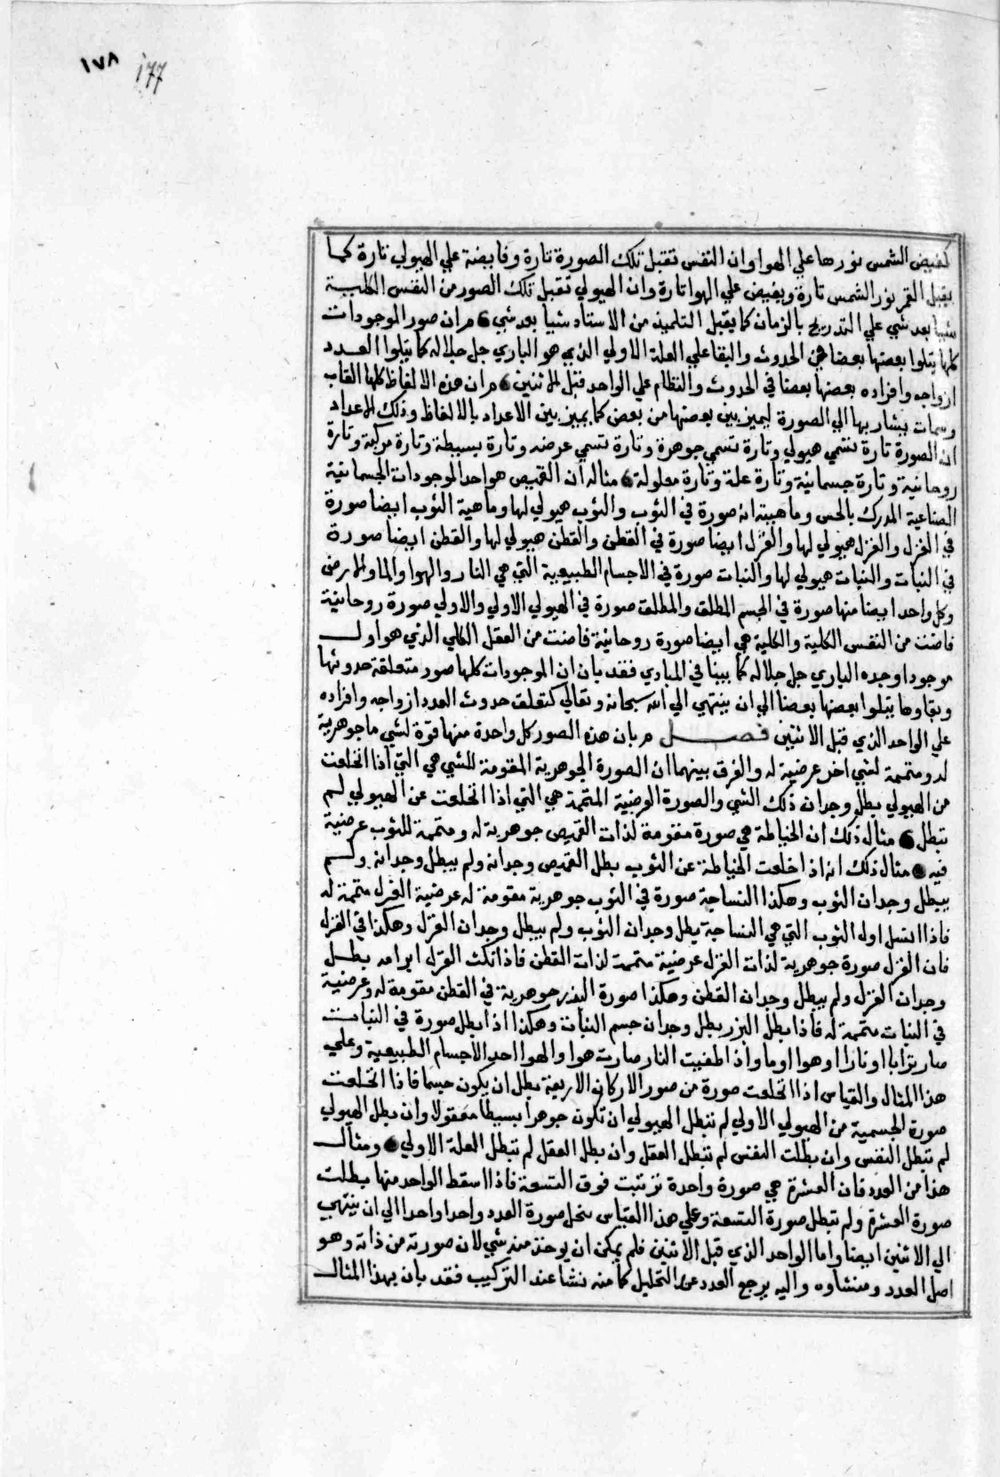 ١٧٨ 177
كفيض الشمس نورها علي الهوا وان النفس تقبل تلك الصورة تارة وفايضة علي الهيولي تارة كما
يقبل القمر نور الشمس تارة ويفيض علي الهوا تارة وان الهيولي تقبل تلك الصور من النفس الكلية
شيا بعد شي علي التدريج بالزمان كما يقبل التلميذ من الاستاد شيا بعد شي ثم ان صور الموجودات
كلها يتلوا بعضها بعضا في الحدوث والبقا علي العلة الاولي الذي هو الباري جل جلاله كما يتلوا العدد
ازواجه وافراده بعضها بعضا في الحدوث والنظام علي الواحد قبل الاثنين ثم ان هذه الالفاظ كلها القاب
وسمات يشار بها الي الصورة ليميز بين بعضها من بعض كما يميز بين الاعداد بالالفاظ وذلك الاعداد
ان الصورة تارة تسمي هيولي وتارة تسمي جوهرة وتارة تسمي عرضه وتارة بسيطة وتارة مركبة وتارة
روحانية وتارة جسمانية وتارة علة وتارة معلولة مثاله ان القميص هو احد الموجودات الجسمانية
الصناعية المدرك بالحس وماهيته انه صورة في الثوب والثوب هيولي لها وماهية الثوب ايضا صورة
في الغزل والغزل هيولي لها والغزل ايضا صورة في القطن والقطن هيولي لها والقطن ايضا صورة
في النبات والنبات هيولي لها والنبات صورة في الاجسام الطبيعية التي هي النار والهوا والما والارض
وكل واحد ايضا منها صورة في الجسم المطلق والمطلق صورة في الهيولي الاولي والاولي صورة روحانية
فاضت من النفس الكلية والكلية هي ايضا صورة روحانية فاضت من العقل الكلي الذي هو اول
موجود اوجده الباري جل جلاله كما بينا في المبادي فقد بان ان الموجودات كلها صور متعلقة حدوثها
وبقاوها يتلوا بعضها بعضا الي ان ينتهي الي الله سبحانه وتعالي كتعلق حدوث العدد ازواجه وافراده
علي الواحد الذي قبل الاثنين فصل ثم بان هذه الصور كل واحدة منها قوة لشي ما جوهرية
له ومتممة لشي اخر عرضية له والفرق بينهما ان الصورة الجوهرية المقومة للشي هي التي اذا انخلعت
من الهيولي بطل وجدان ذلك الشي والصورة العرضية المتممة هي التي اذا انخلعت عن الهيولي لم
تبطل مثال ذلك ان الخياطة هي صورة مقومة لذات القميص جوهرية له ومتممة للثوب عرضية
فيه مثال ذلك انه اذا خلعت الخياطة عن الثوب بطل القميص وجدانه ولم يبطل وجدانه ولم
يبطل وجدان الثوب وهكذا النساجة صورة في الثوب جوهرية مقومة له عرضية الغزل متممة له
فاذا انسل الثوب التي هي النساجة بطل وجدان الثوب ولم يبطل وجدان الغزل وهكذا في الغزل
فان الغزل صورة جوهرية لذات الغزل عرضية متممة لذات القطن فاذا نكث الغزل ابرامه بطل
وجدان الغزل ولم يبطل وجدان القطن وهكذا صورة البذر جوهرية في القطن مقومة له وعرضية
في النبات متممة له فاذا بطل البزر بطل وجدان جسم النبات وهكذا اذا بطل صورة في النبات
صار ترابا او نارا او هوا او ما واذ اطفيت النار صارت هوا والهوا احد الاجسام الطبيعية وعلي
هذا المثال والقياس اذا انخلعت صورة من صور الاركان الاربعة بطل ان يكون جسما فاذا انخلعت
صورة الجسمية من الهيولي الاولي لم تبطل الهيولي ان تكون جوهرا بسيطا معقولا وان بطل الهيولي
لم تبطل النفس وان بطلت النفس لم تبطل العقل وان بطل العقل لم تبطل العلة الاولي ومثال
هذا من العدد فان العشرة هي صورة واحدة ترتبت فوق التسعة فاذا اسقط الواحد منها بطلت
صورة العشرة ولم تبطل صورة التسعة وعلي هذا القياس تنحل صورة العدد واحدا واحدا الي ان ينتهي
الي الاثنين ايضا واما الواحد الذي قبل الاثنين فلم يمكن ان يوخذ منه شي لان صورته من ذاته وهو
اصل العدد ومنشاوه واليه يرجع العدد عند التحليل كما منه نشا عند التركيب فقد بان بهذا المثال